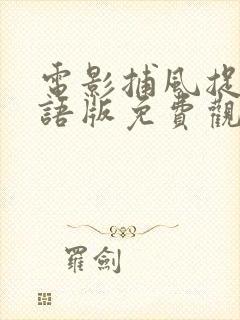 電影捕風捉
語版免費觀
羅劍